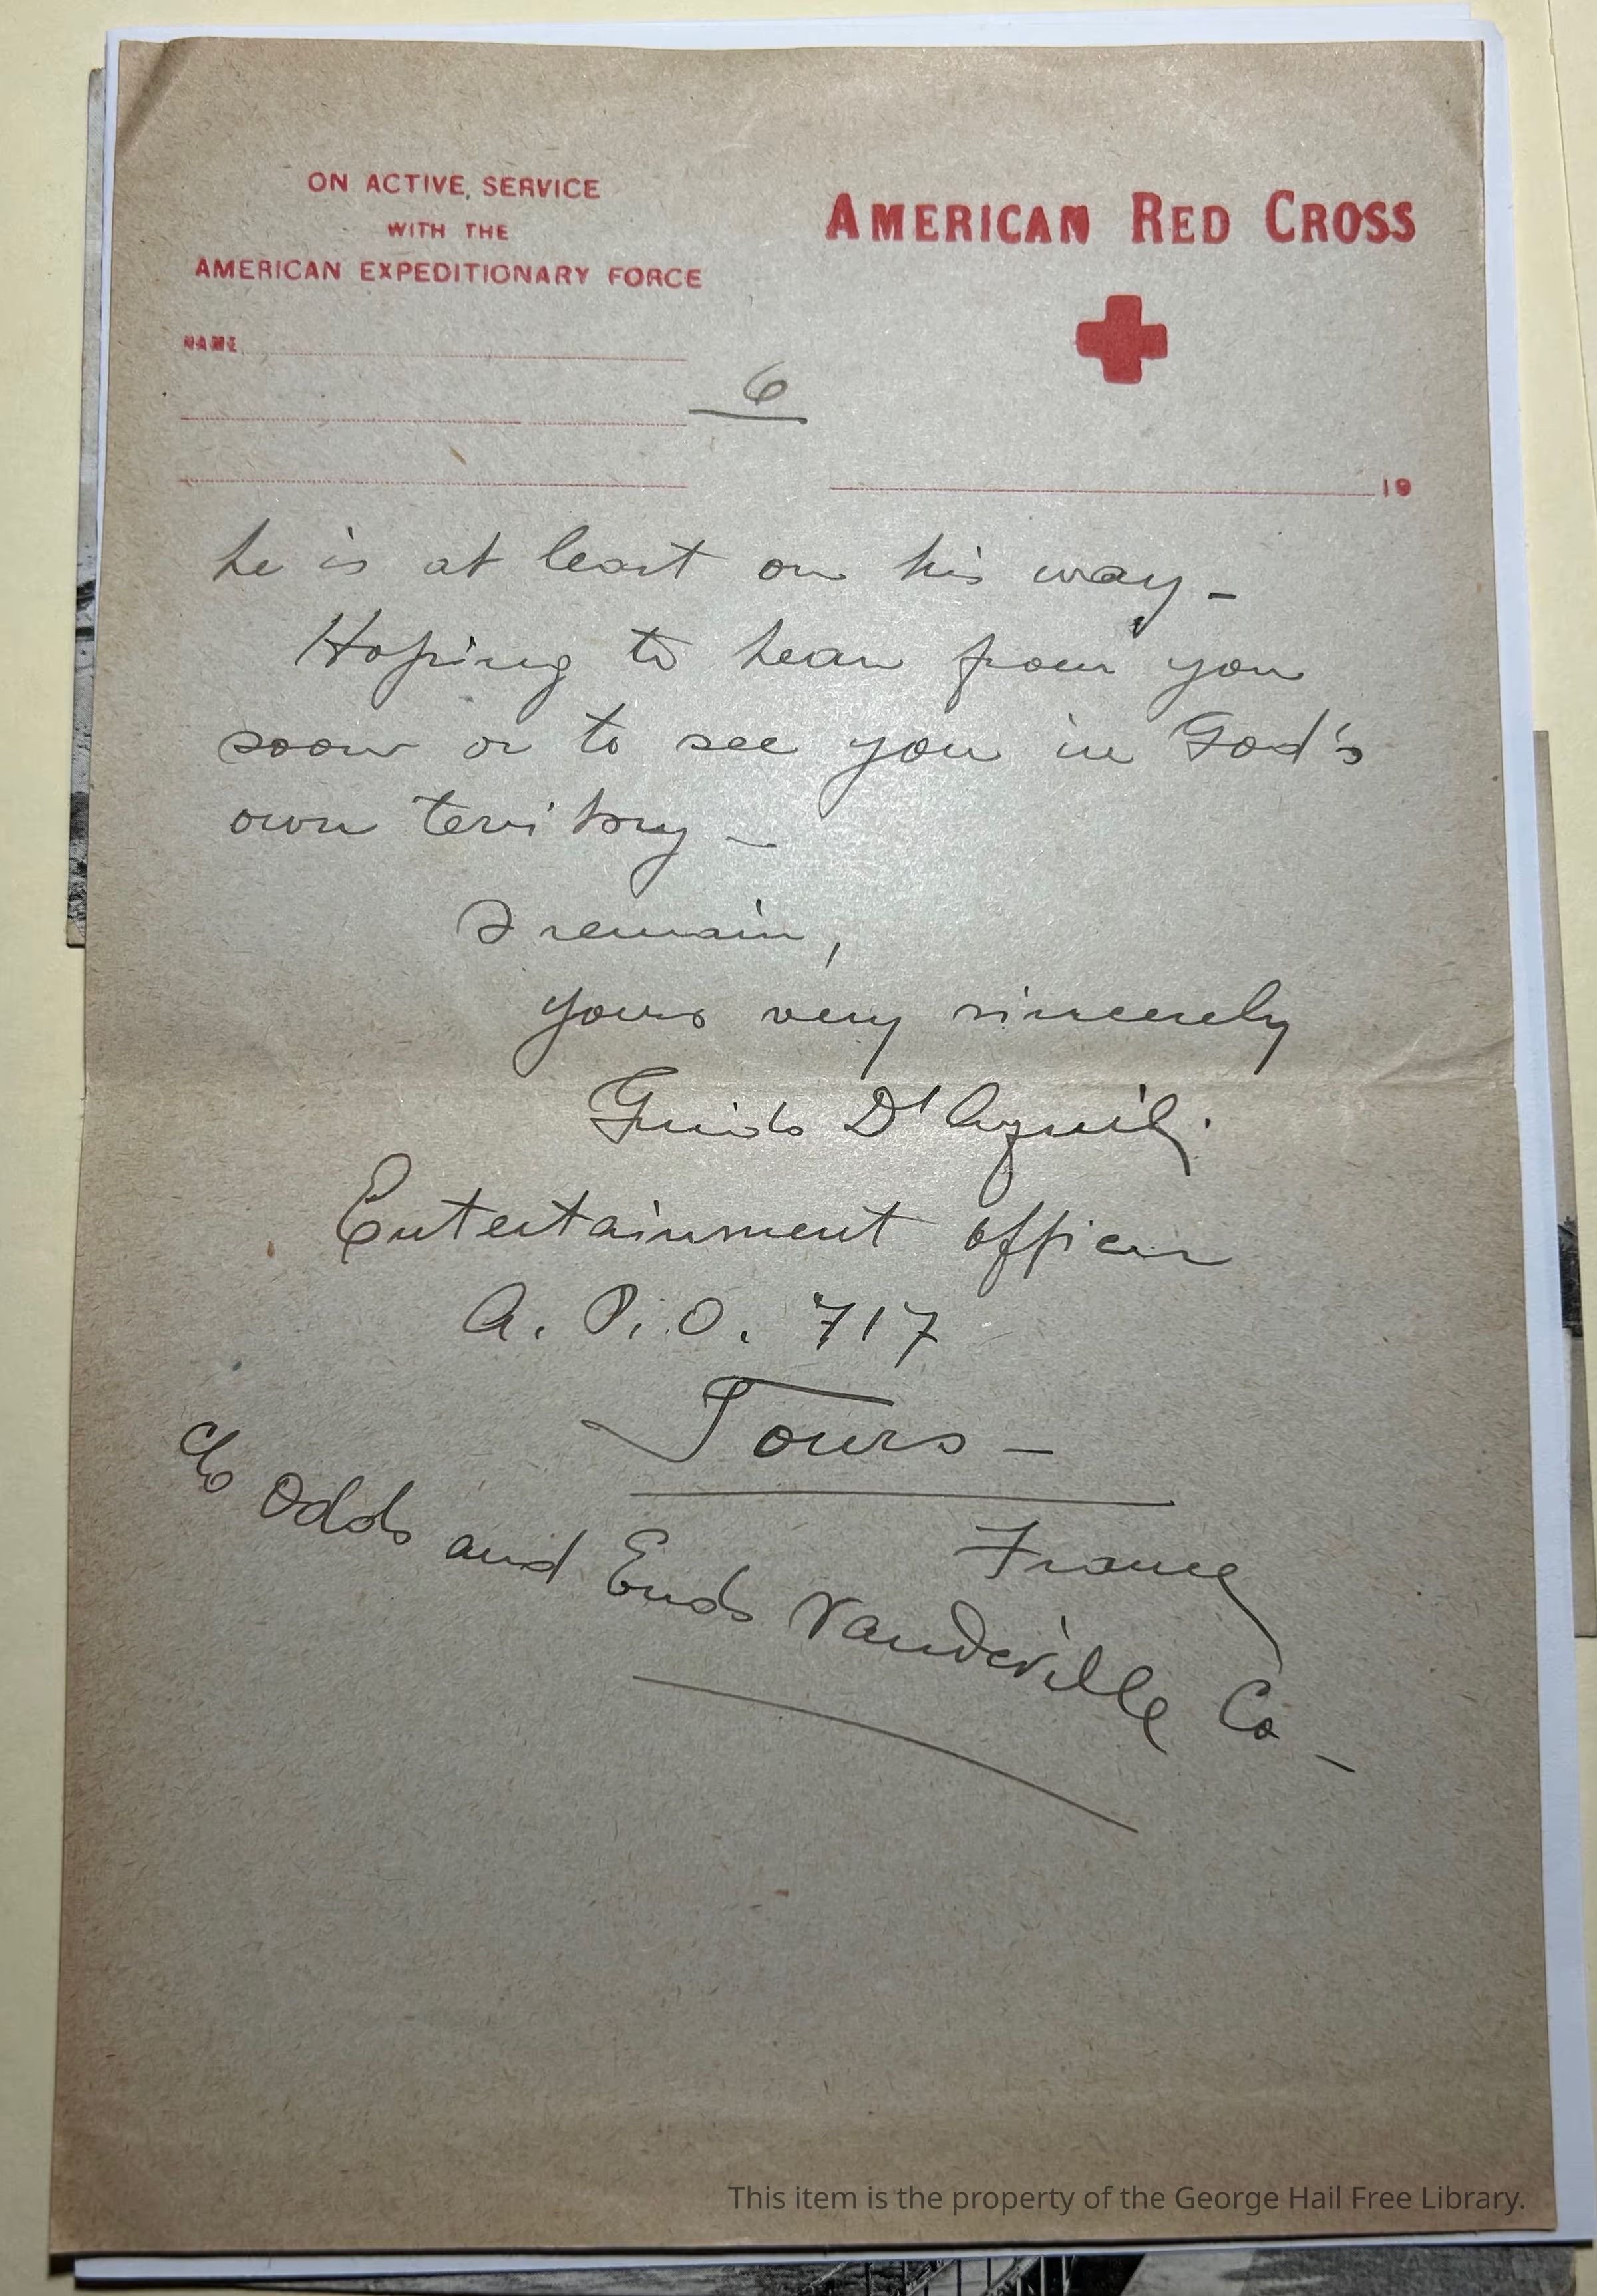 ON ACTIVE SERVICE
WITH THE
AMERICAN EXPEDITIONARY FORCE
AMERICAN RED CROSS
NAME
6
19
he is at least on his way –
Hoping to hear from you
soon or to see you in God's
own teritory –
I remain,
yours very sincerely
Guido D'Aquili.
Entertainment officer
A. P. O. 717
Tours –
France
c/o Odds and Ends Vaudeville Co –
This item is the property of the George Hail Free Library.